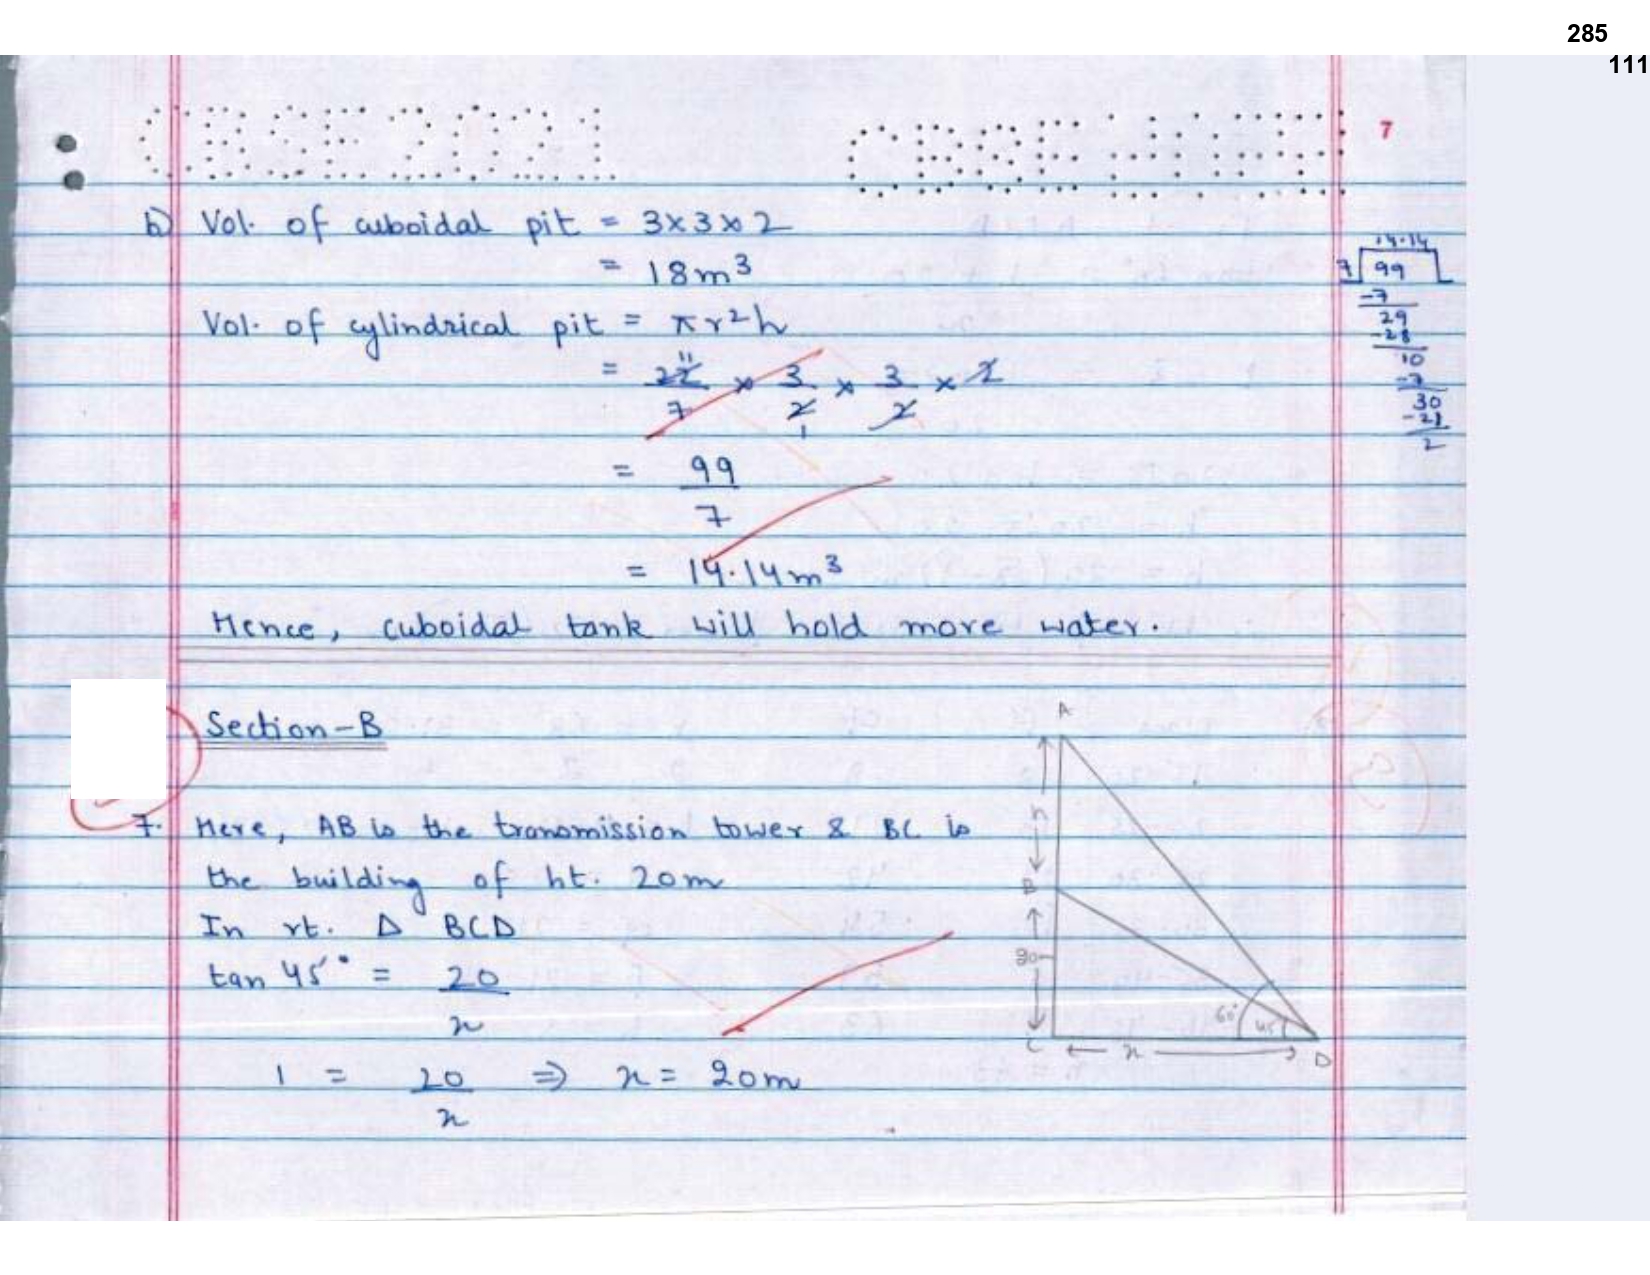 285
111
CBSE 2021
7
b) Vol. of cuboidal pit = 3x3x2
= 18m³
Vol. of cylindrical pit = πr²h
= 22/7 x 3/2 x 3/2 x 2
11
1
= 99/7
= 14.14m³
Hence, cuboidal tank will hold more water.
14.14
7 99
-7
29
-28
10
-7
30
-28
2
Section-B
7. Here, AB is the transmission tower & BC is
the building of ht. 20m
In rt. Δ BCD
tan 45° = 20/x
1 = 20/x ⇒ x = 20m
A
h
B
20
C
x
D
60°
45